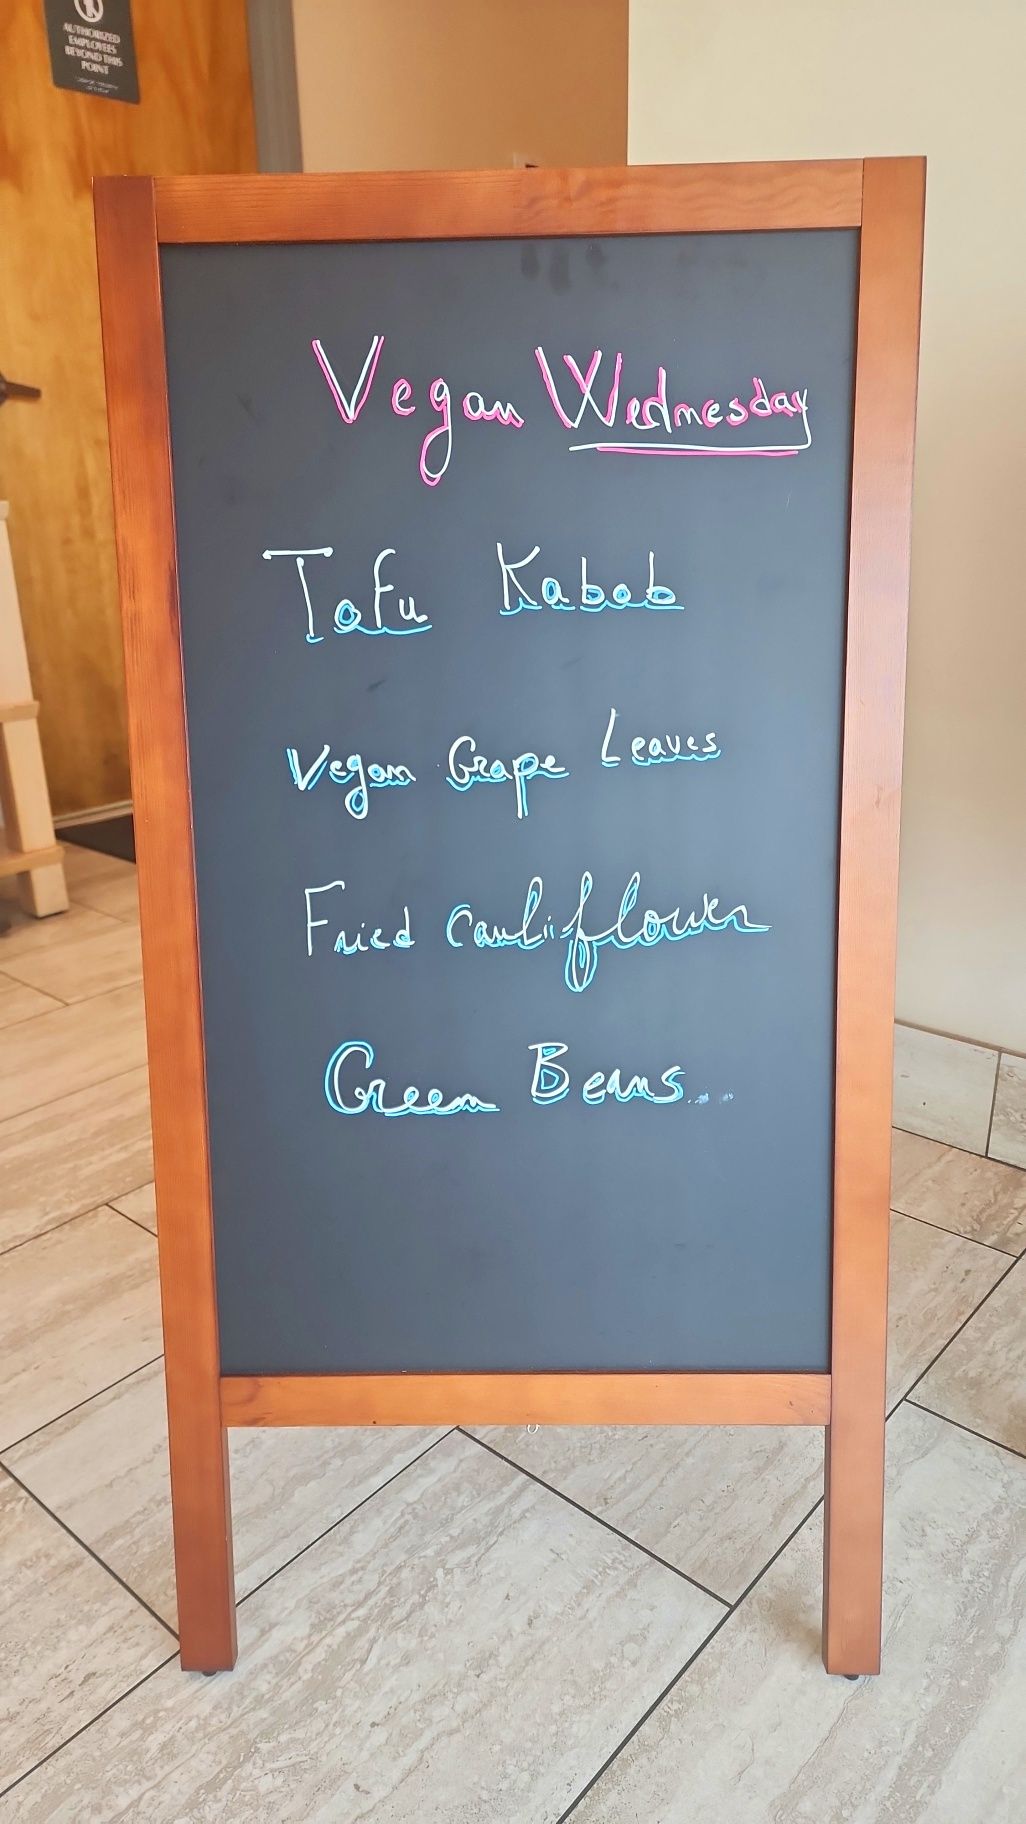 AUTHORIZED
EMPLOYEES
BEYOND THIS
POINT
Vegan Wednesday
Tofu Kabob
Vegan Grape Leaves
Fried cauliflower
Green Beans